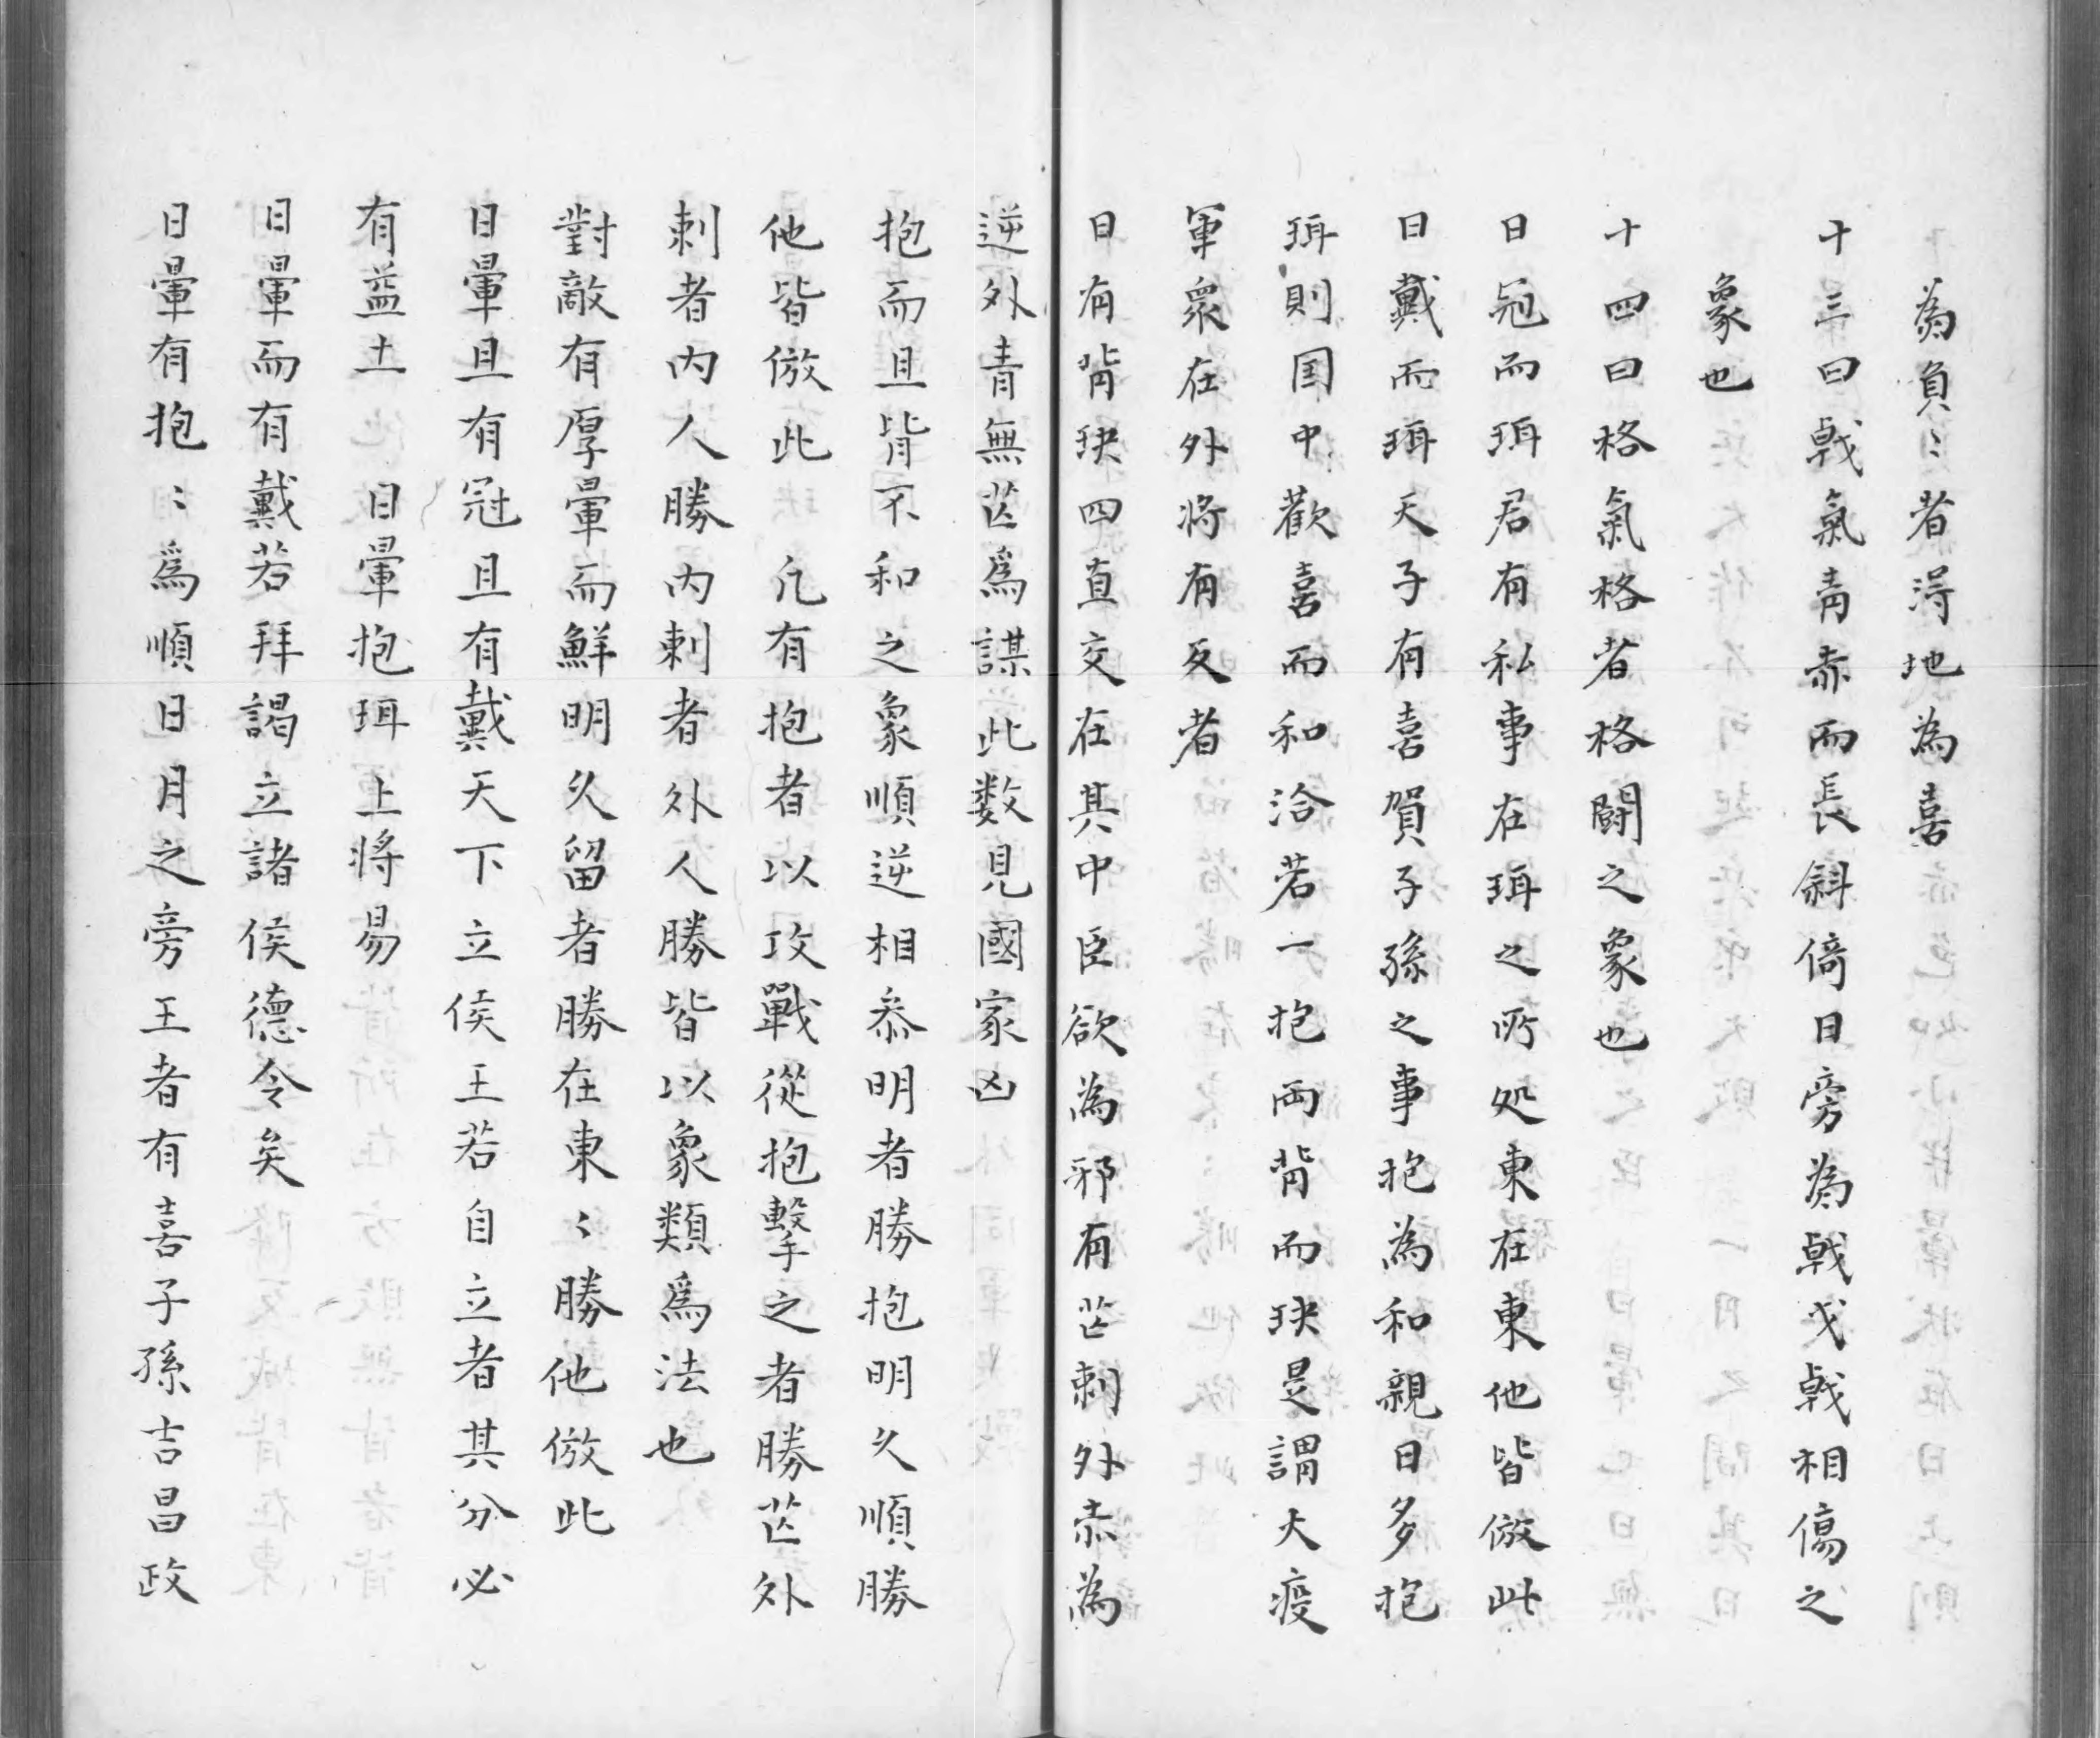 為負〻者淂地為喜
十三曰戟氣青赤而長斜倚日旁為戟戈戟相傷之
象也
十四曰格氣格者格闘之象也
日冠而珥君有私事在珥之所処東在東他皆倣此
日戴而珥天子有喜賀子孫之事抱為和親日多抱
珥則国中歡喜而和洽若一抱両背而玦是謂大疫
軍衆在外将有反者
日有背玦四直交在其中臣欲為邪有芒刺外赤為
逆外青無芒爲謀此数見國家凶
抱而且背不和之象順逆相叅明者勝抱明久順勝
他皆倣此 凢有抱者以攻戰從抱擊之者勝芒外
刺者内人勝内刺者外人勝皆以象類爲法也
對敵有厚暈而鮮明久留者勝在東〻勝他倣此
日暈且有冠且有戴天下立侯王若自立者其分必
有益土 日暈抱珥上將易
日暈而有戴若拜謁立諸侯德令矣
日暈有抱〻爲順日月之旁王者有喜子孫吉昌政